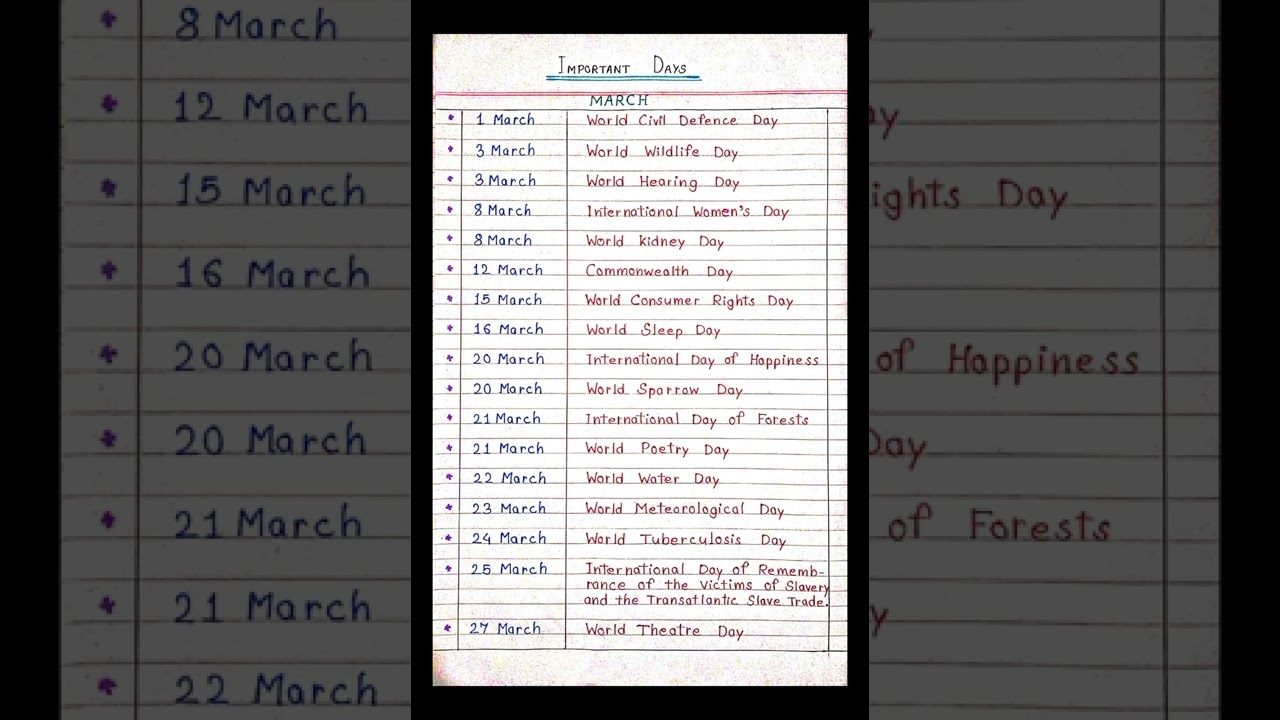 IMPORTANT DAYS
MARCH
* 1 March World Civil Defence Day
* 3 March World Wildlife Day
* 3 March World Hearing Day
* 8 March International Women's Day
* 8 March World kidney Day
* 12 March Commonwealth Day
* 15 March World Consumer Rights Day
* 16 March World Sleep Day
* 20 March International Day of Happiness
* 20 March World Sparrow Day
* 21 March International Day of Forests
* 21 March World Poetry Day
* 22 March World Water Day
* 23 March World Meteorological Day
* 24 March World Tuberculosis Day
* 25 March International Day of Rememb-
rance of the Victims of Slavery
and the Transatlantic Slave Trade.
* 27 March World Theatre Day
* 8 March
12 March ay
* 15 March ights Day
16 March
* 20 March of Happiness
* 20 March Day
* 21 March of Forests
* 21 March y
* 22 March